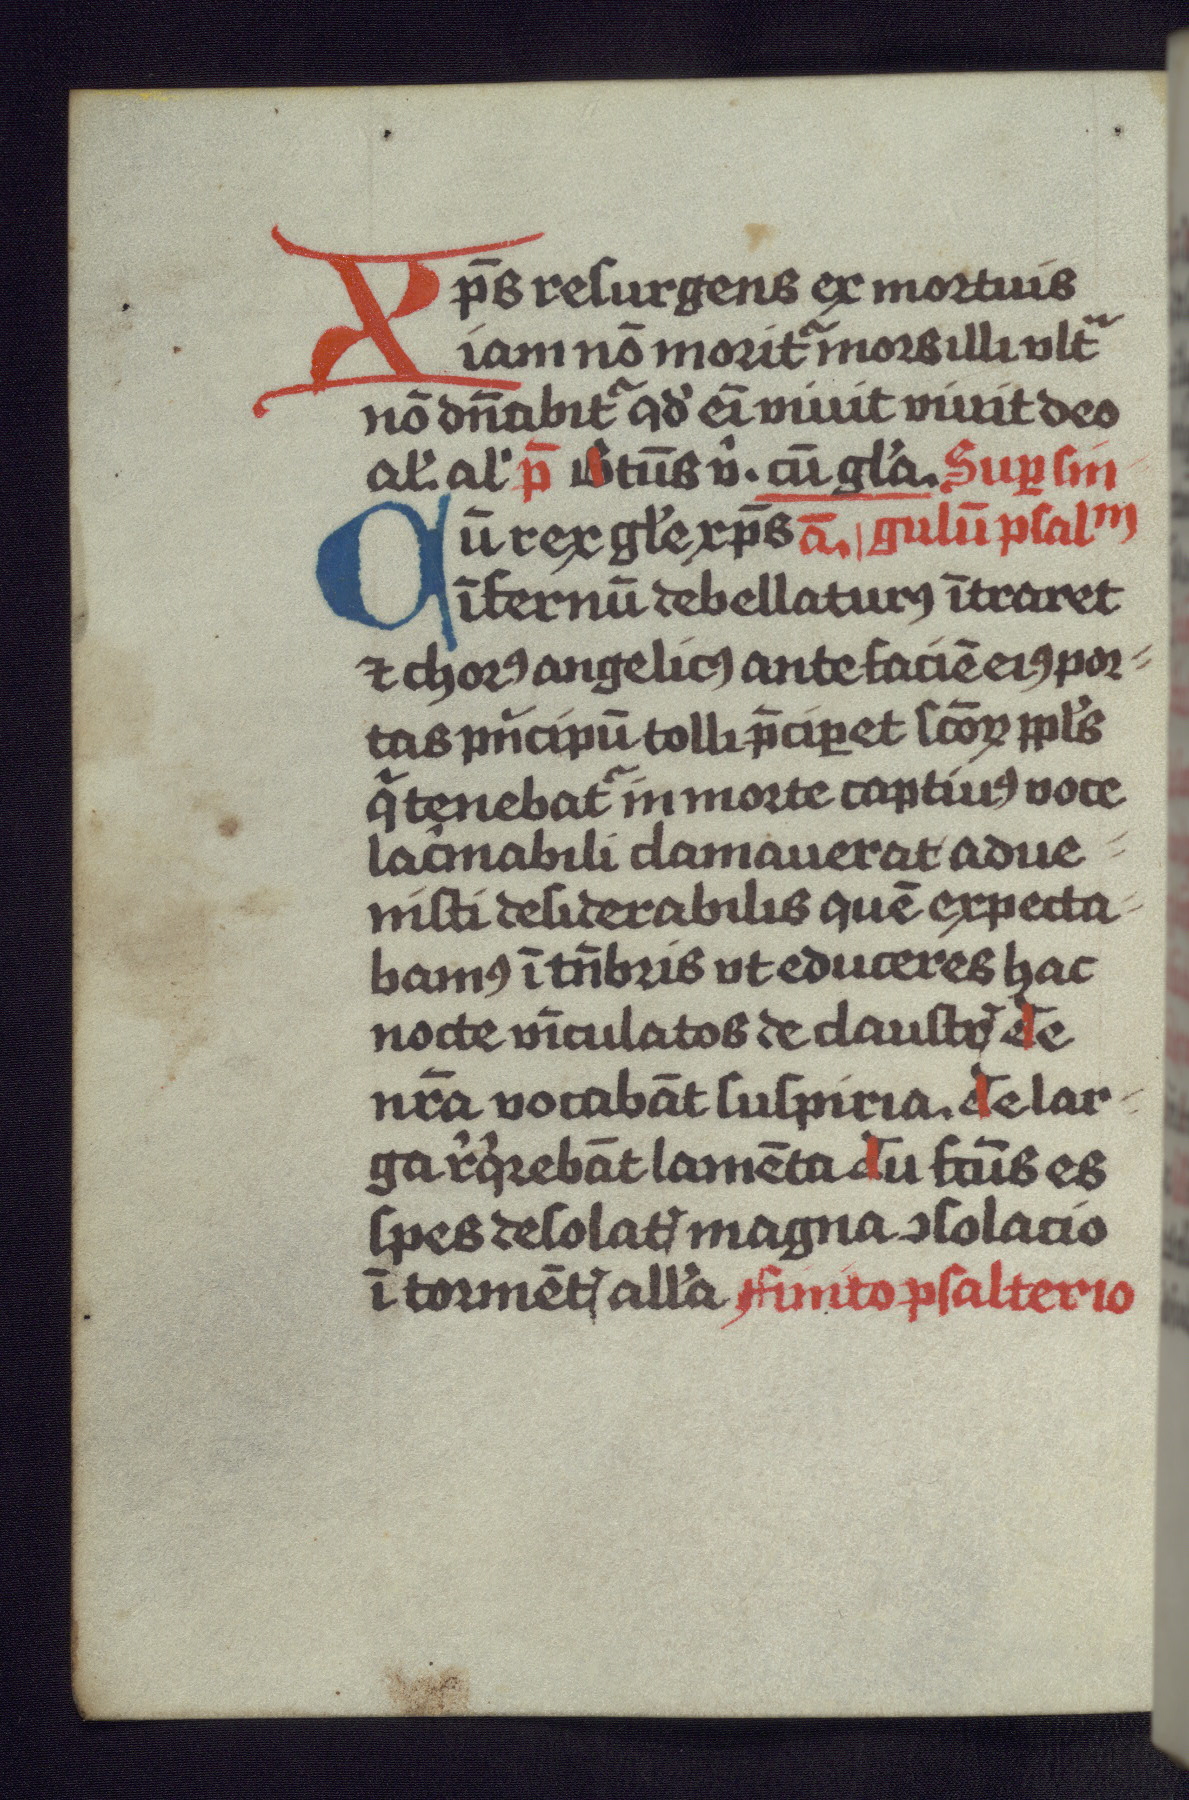 Xp̄s resurgens ex mortuis
iam nō morit᷑ mors illi vlt᷑
nō dn̄abit᷑ qd̛ eī viuit viuit deo
al'. al' p̄ v̛tūs v̛. cū gl'a. Sup̱ sin-
Cū rex gl'e xp̄s ā. gulū psalm
īfernū debellaturꝯ ītraret
⁊ chorꝯ angelicꝯ ante faciē eiꝯ por-
tas pn̛cipū tolli p̄cip̱et scōꝝ ppl's
q̛ tenebat᷑ in morte captiuꝯ voce
lac̛mabili clamauerat adue-
nisti desiderabilis quē expecta-
bamꝯ ī tn̄bris vt educeres hac
nocte vīculatos de claustr̛ Te
nr̄a vocabāt suspiria. Te lar-
ga r̛q̛rebāt lamēta Tu fc̄us es
spes desolat̛ magna ↄsolacio
ī tormēt̛ all'a finito psalterio